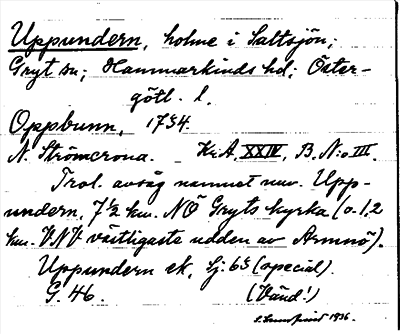 Uppundern, holme i Saltsjön;
Gryt sn; Hammarkinds hd; Öster-
götl. l.
Oppbunn, 1734.
N. Strömcrona. Kr.A. XXIV, B. N:o III.
Trol. avsåg namnet nuv. Upp-
undern, 7½ km. NÖ Gryts kyrka (o. 1,2
km. VNV västligaste udden av Armnö).
Uppundern ek, Sj. 63 (special).
G. 46. (Vänd!)
1936.